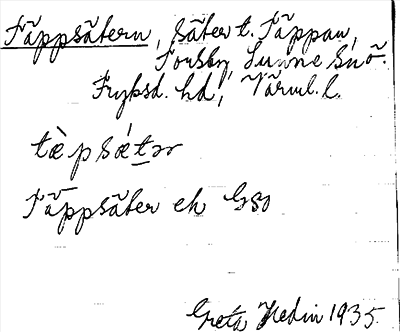 Täppsätern, säter t. Täppan,
Forsby, Sunne sn ö.
Fryksd. hd, Värml. l.
tæ̀psǽtər
Täppsäter ek G80
Greta Hedin 1935.